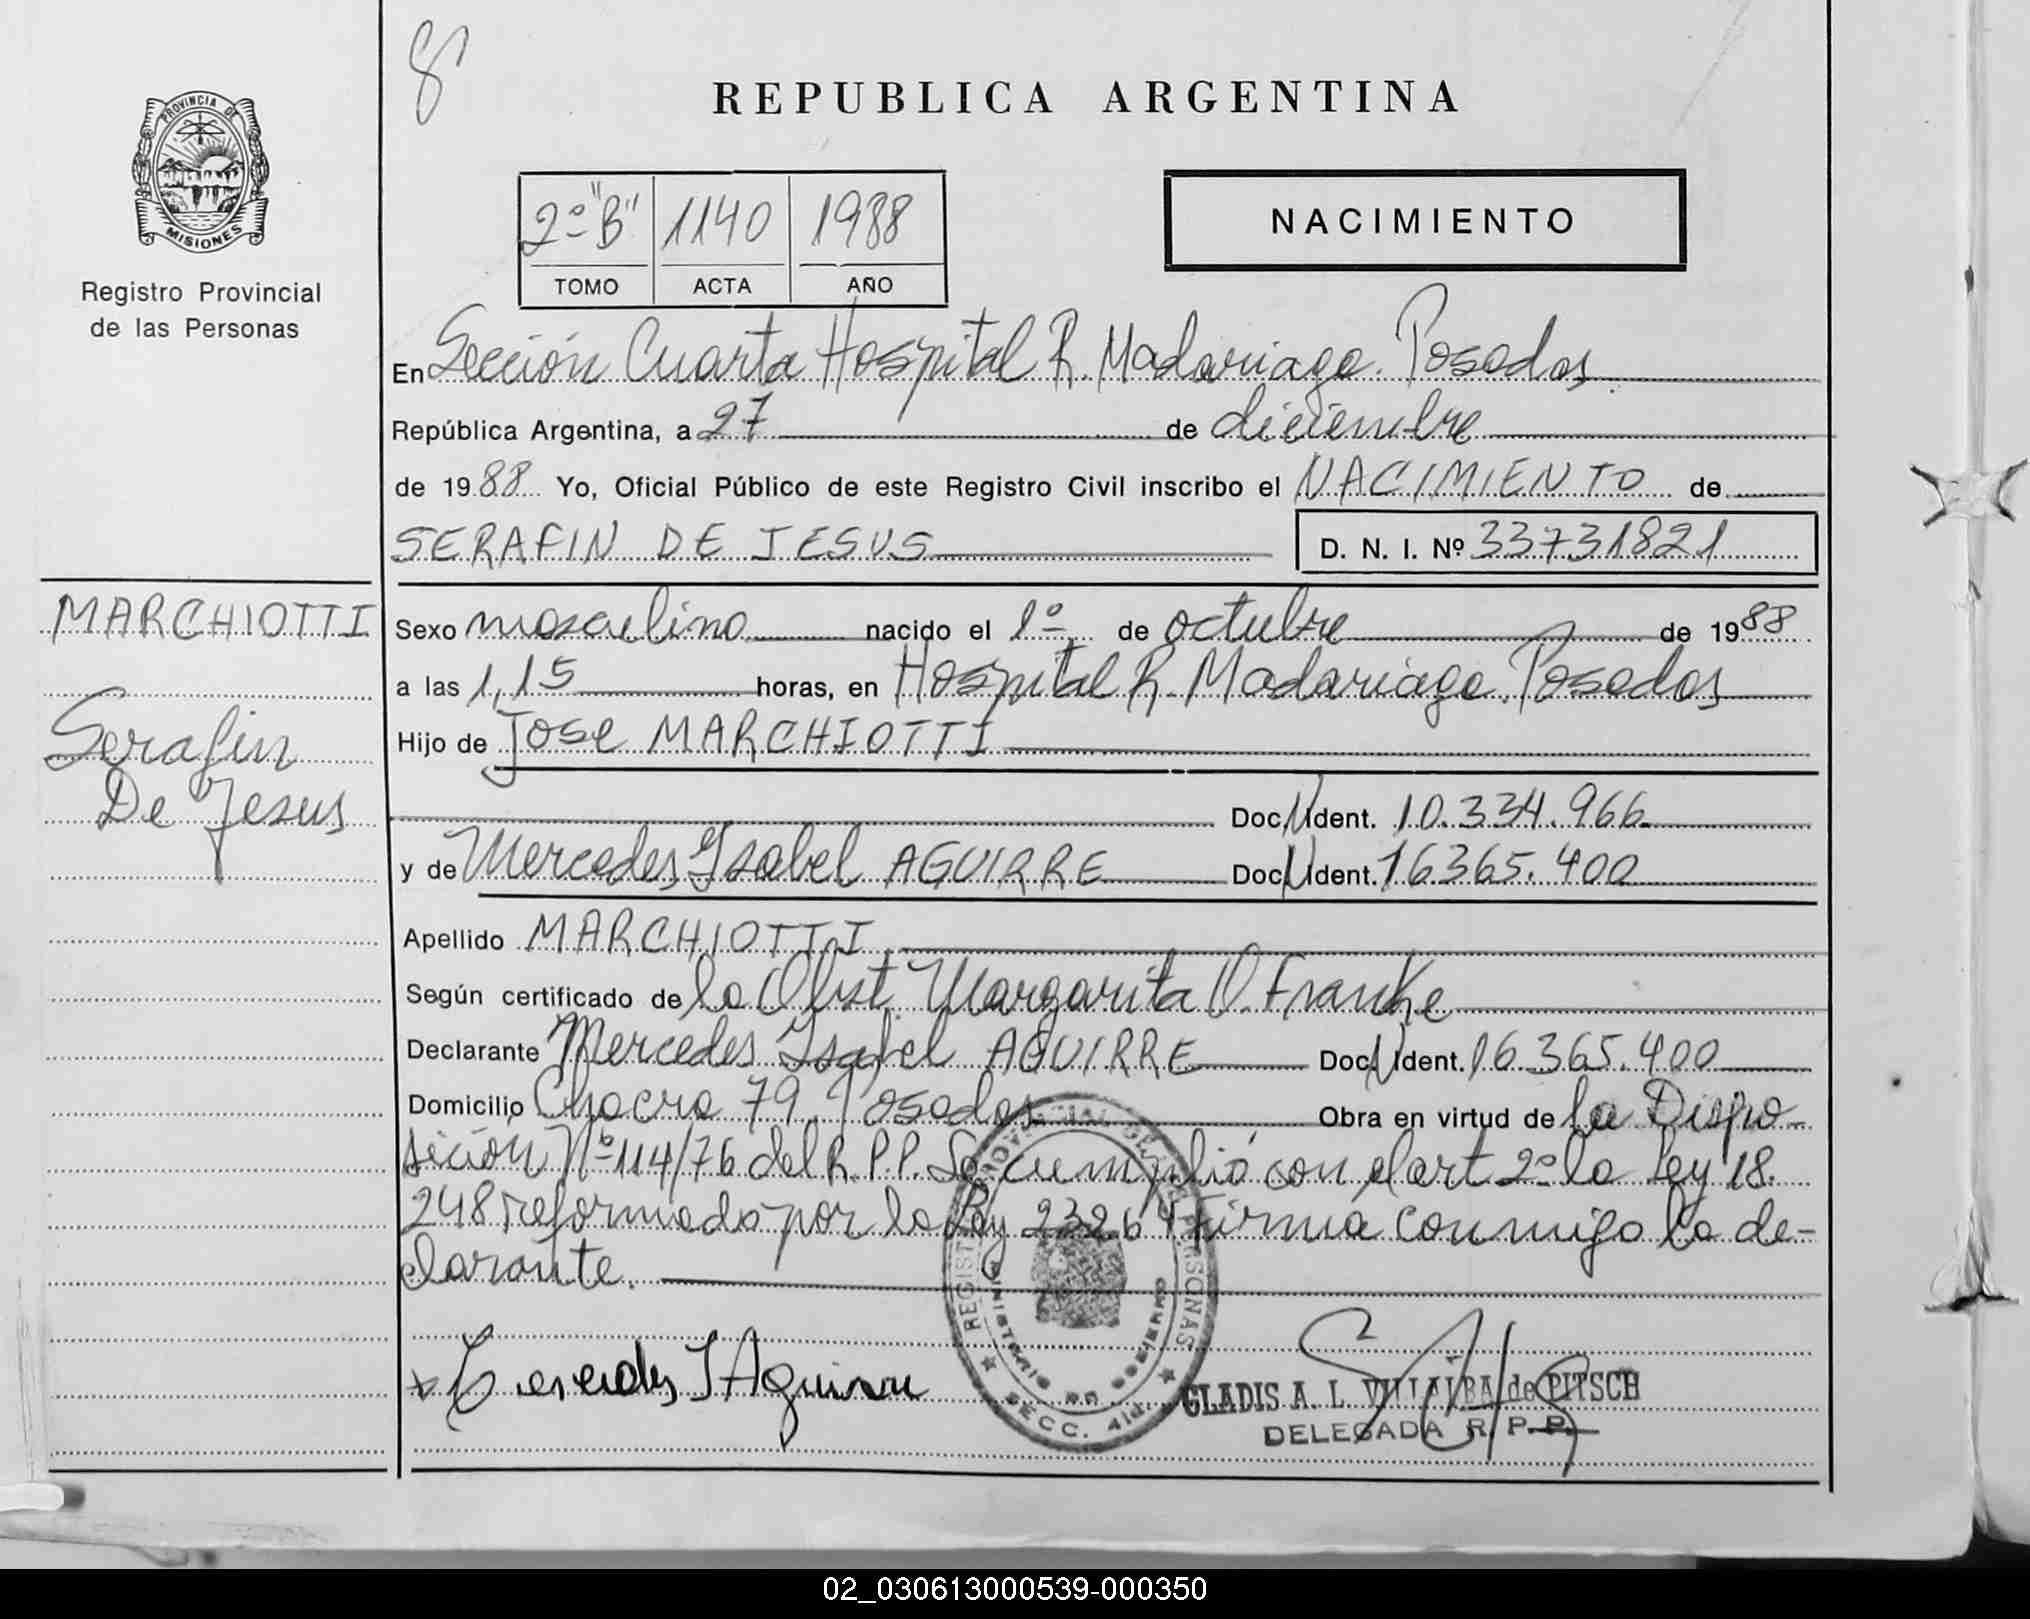 8
REPUBLICA ARGENTINA
PROVINCIA DE
MISIONES
Registro Provincial
de las Personas
2º "B" 1140 1988
TOMO ACTA AÑO
NACIMIENTO
En Sección Cuarta Hospital R. Madariaga. Posadas
República Argentina, a 27 de diciembre
de 1988 Yo, Oficial Público de este Registro Civil inscribo el NACIMIENTO de
SERAFIN DE JESUS D. N. I. Nº 33731821
MARCHIOTTI
Serafin
De Jesus
Sexo masculino nacido el 1º de octubre de 1988
a las 1,15 horas, en Hospital R. Madariaga. Posadas
Hijo de Jose MARCHIOTTI
Doc. Ident. 10.334.966
y de Mercedes Isabel AGUIRRE Doc. Ident. 16365.400
Apellido MARCHIOTTI
Según certificado de la Obst. Margarita O. Franke
Declarante Mercedes Isabel AGUIRRE Doc. Ident. 16.365.400
Domicilio Chacra 79. Posadas Obra en virtud de la Dispo-
sición Nº 114/76 del R.P.P. Se cumplió con el art 2º la Ley 18.
248 reformado por la Ley 23264 Firma conmigo la de-
clarante.
REGISTRO PROVINCIAL DE LAS PERSONAS
MINISTERIO DE GOBIERNO
SECC. 4ta.
Mercedes I Aguirre
GLADIS A. L. VILLALBA de PITSCH
DELEGADA R. P. P.
02_030613000539-000350